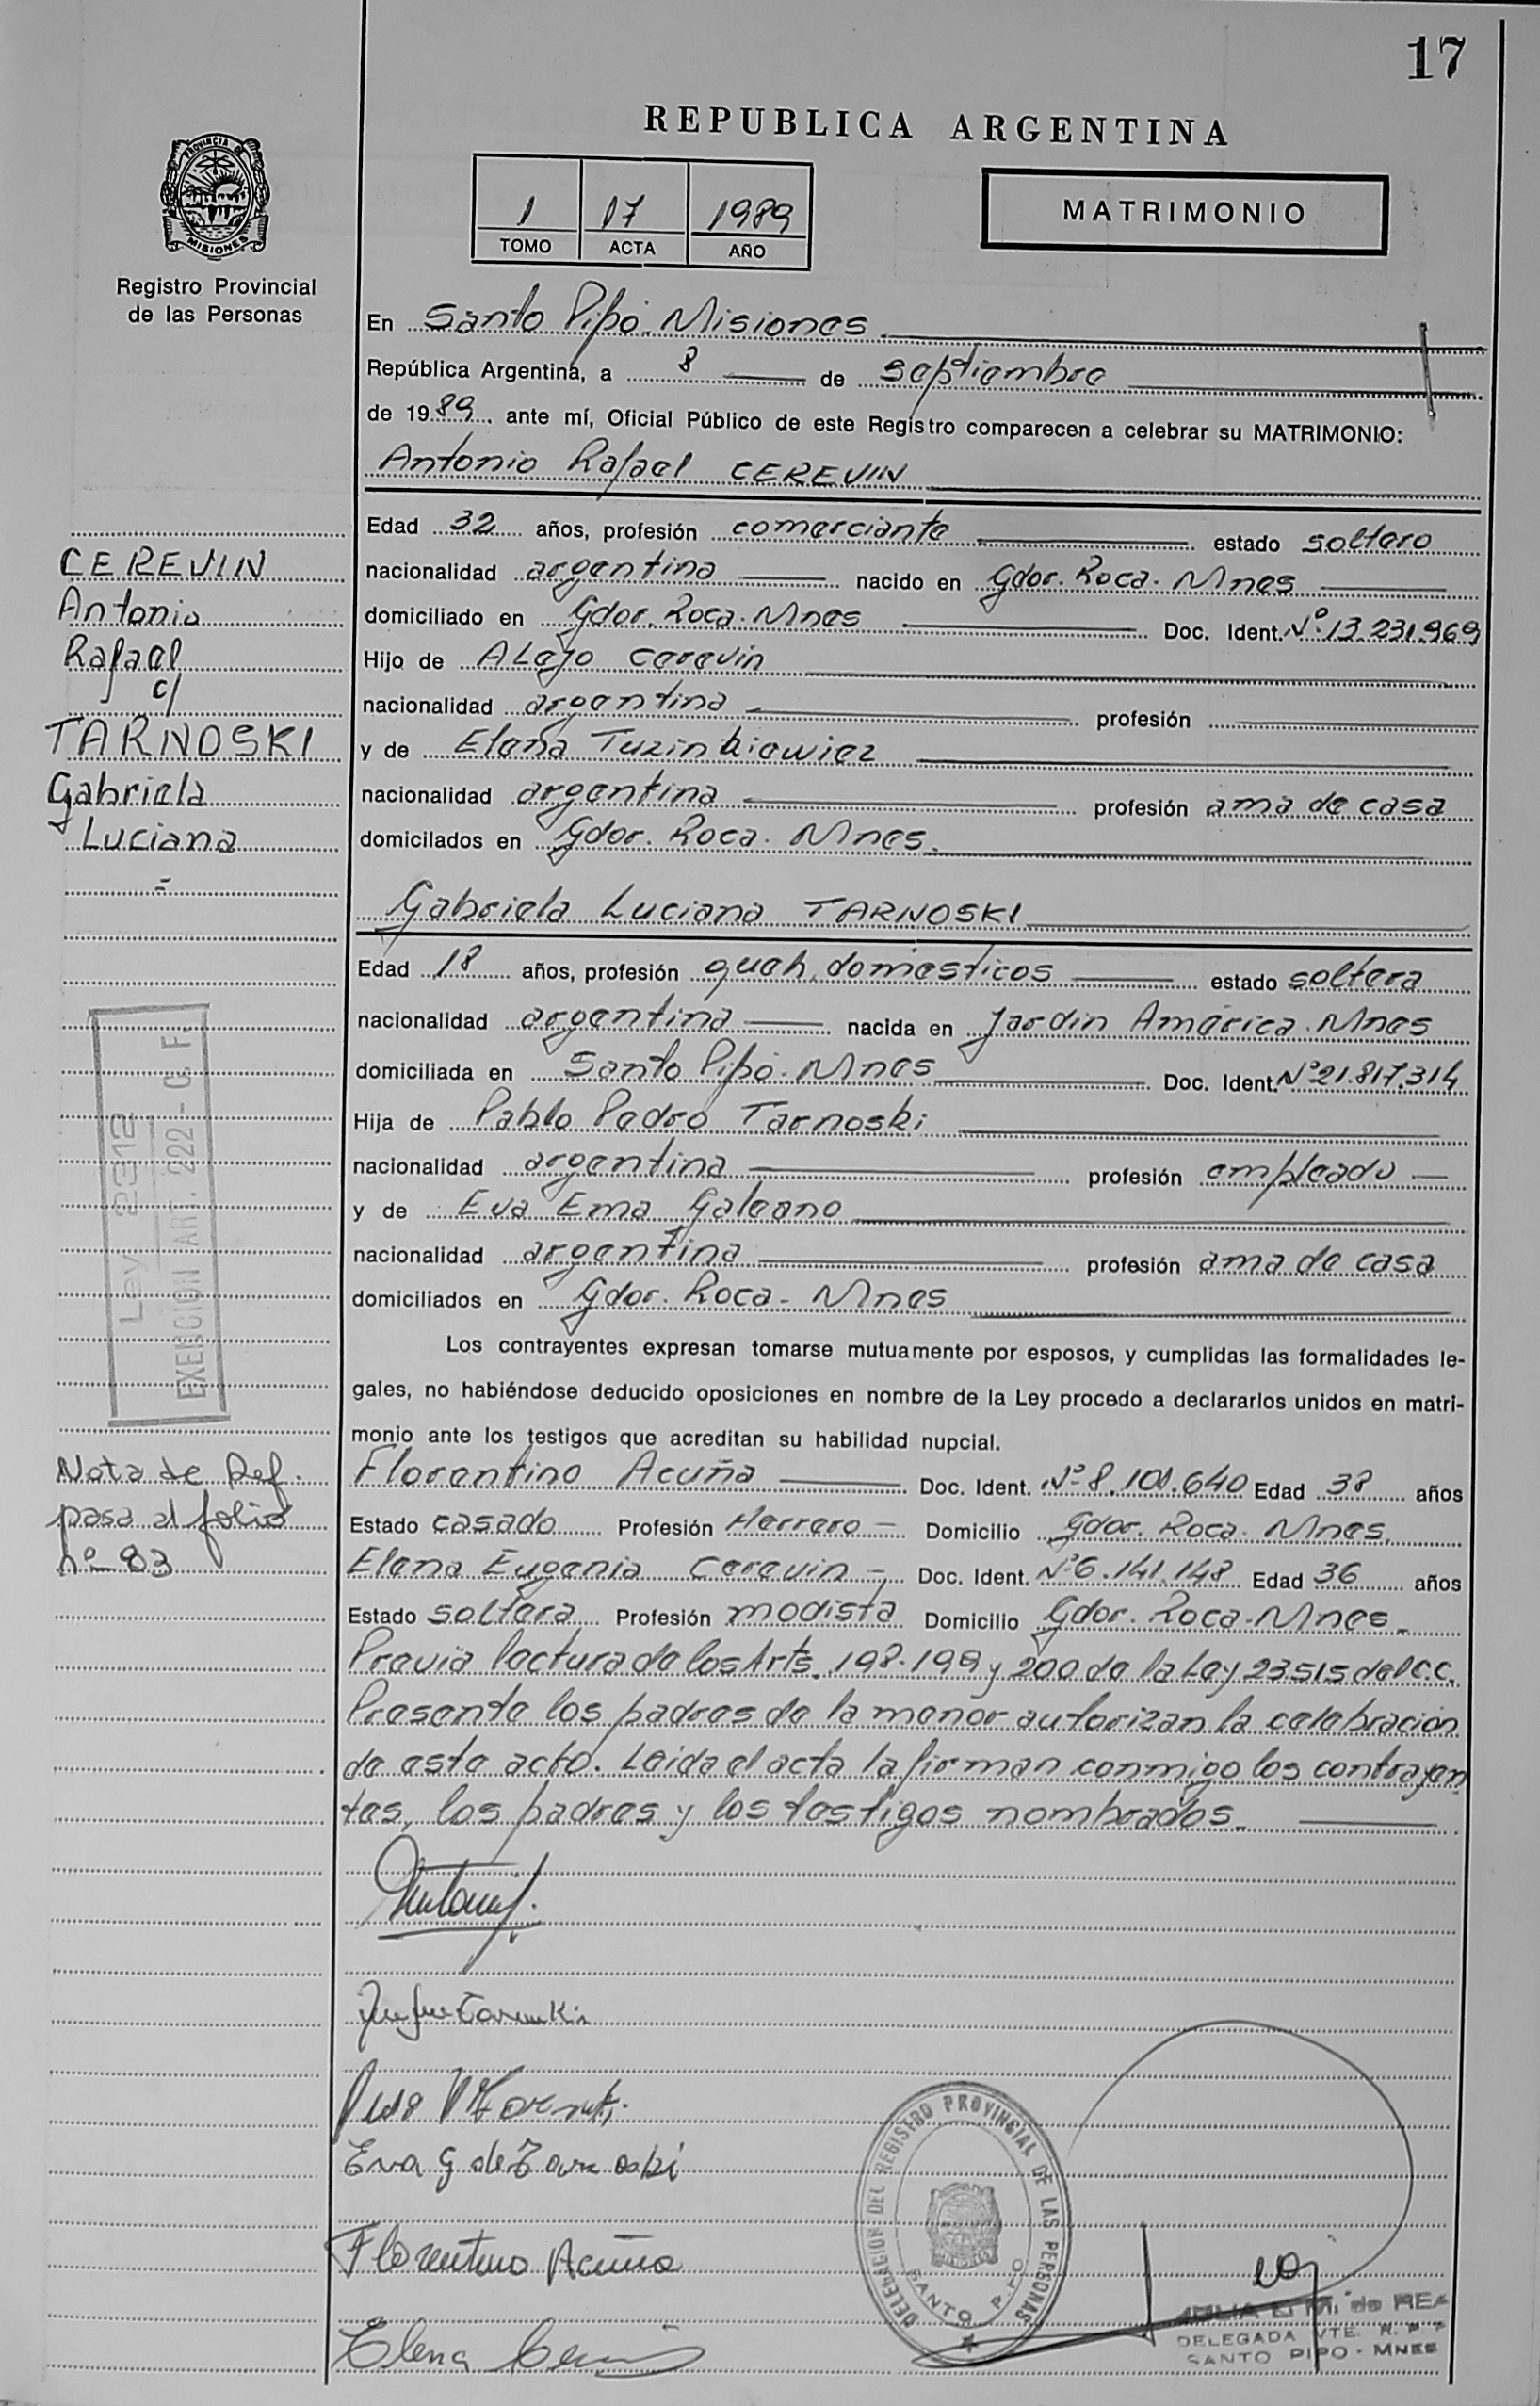 17
REPUBLICA ARGENTINA
PROVINCIA DE
MISIONES
Registro Provincial
de las Personas
1 17 1989
TOMO ACTA AÑO
MATRIMONIO
En Santo Pipó. Misiones
República Argentina, a 8 de septiembre
de 1989. ante mí, Oficial Público de este Registro comparecen a celebrar su MATRIMONIO:
Antonio Rafael CEREVIN
Edad 32 años, profesión comerciante estado soltero
nacionalidad argentina nacido en Gdor. Roca. Mnes
domiciliado en Gdor. Roca. Mnes Doc. Ident. Nº 13.231.969
Hijo de Alejo Cerevin
nacionalidad argentina profesión
y de Elena Tuzinkiewicz
nacionalidad argentina profesión ama de casa
domicilados en Gdor. Roca. Mnes.
CEREVIN
Antonio
Rafael
c/
TARNOSKI
Gabriela
Luciana
Gabriela Luciana TARNOSKI
Edad 18 años, profesión queh. domesticos estado soltera
nacionalidad argentina nacida en Jardin América. Mnes
domiciliada en Santo Pipó. Mnes Doc. Ident. Nº 21.817.314
Hija de Pablo Pedro Tarnoski
nacionalidad argentina profesión empleado
y de Eva Ema Galeano
nacionalidad argentina profesión ama de casa
domiciliados en Gdor. Roca - Mnes
Ley 2312
EXENCION ART. 222 - C. F.
Los contrayentes expresan tomarse mutuamente por esposos, y cumplidas las formalidades le-
gales, no habiéndose deducido oposiciones en nombre de la Ley procedo a declararlos unidos en matri-
monio ante los testigos que acreditan su habilidad nupcial.
Florentino Acuña Doc. Ident. Nº 8.101.640 Edad 38 años
Estado casado Profesión Herrero - Domicilio Gdor. Roca. Mnes.
Elena Eugenia Cerevin - Doc. Ident. Nº 6.141.148 Edad 36 años
Estado soltera Profesión modista Domicilio Gdor. Roca - Mnes.
Nota de Ref.
pasa al folio
nº 83
Previa lectura de los Arts. 198-199 y 200 de la Ley 23515 del C.C.
Presente los padres de la menor autorizan la celebración
de este acto. Leida el acta la firman conmigo los contrayen
tes, los padres y los testigos nombrados.
Eva G de Tarnoski
Florentino Acuña
Elena
DELEGACION DEL REGISTRO PROVINCIAL DE LAS PERSONAS
SANTO PIPO
DELEGADA VTE. R. P. P
SANTO PIPO - MNES